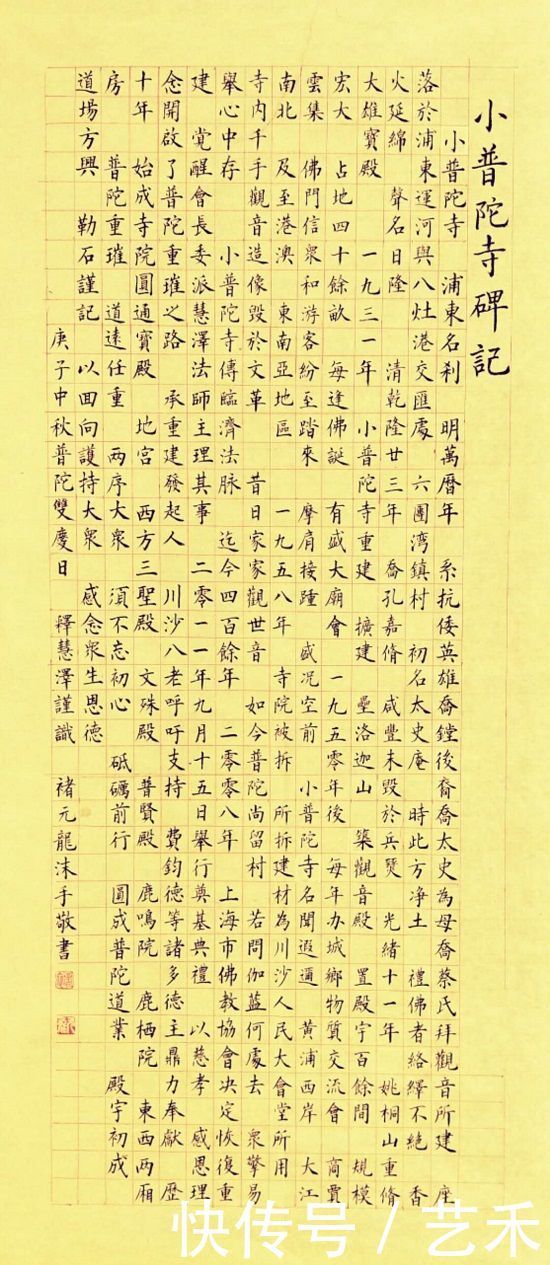 小普陀寺碑記
小普陀寺 浦東名刹 明萬曆年 系抗倭英雄喬鏜後裔喬太史為母喬蔡氏拜觀音所建 座
落於浦東運河與八灶港交匯處 六團湾鎮村 初名太史庵 時此方净土 禮佛者絡繹不絶 香
火延綿 聲名日隆 清乾隆廿三年 喬孔嘉脩 咸豐末毀於兵燹 光緒十一年 姚桐山重脩
大雄寶殿 一九三一年 小普陀寺重建 擴建 壘洛迦山 築觀音殿 置殿宇百餘間 規模
宏大 占地四十餘畝 每逢佛誕 有盛大廟會 一九五零年後 每年办城鄉物質交流會 商賈
雲集 佛門信衆和游客紛至踏來 摩肩接踵 盛况空前 小普陀寺名聞遐邇 黄浦西岸 大江
南北 及至港澳 東南亞地區 一九五八年 寺院被拆 所拆建材為川沙人民大會堂所用
寺内千手觀音造像毀於文革 昔日家家觀世音 如今普陀尚留村 若問伽藍何處去 衆擎易
舉心中存 小普陀寺傳臨濟法脉 迄今四百餘年 二零零八年 上海市佛教協會决定恢復重
建 覺醒會長委派慧澤法師主理其事 二零一一年九月十五日舉行奠基典禮 以慈孝 感恩理
念開啟了普陀重璀之路 承重建發起人 川沙八老呼吁支持 費鈞德等諸多德主鼎力奉獻 歷
十年 始成寺院圓通寶殿 地宫 西方三聖殿 文殊殿 普賢殿 鹿鳴院 鹿栖院 東西两厢
房 普陀重璀 道遠任重 两序大衆 須不忘初心 砥礪前行 圓成普陀道業 殿宇初成
道場方興 勒石謹記 以回向護持大衆 感念衆生恩德
庚子中秋普陀雙慶日 釋慧澤謹識 褚元龍沐手敬書
快传号/艺禾